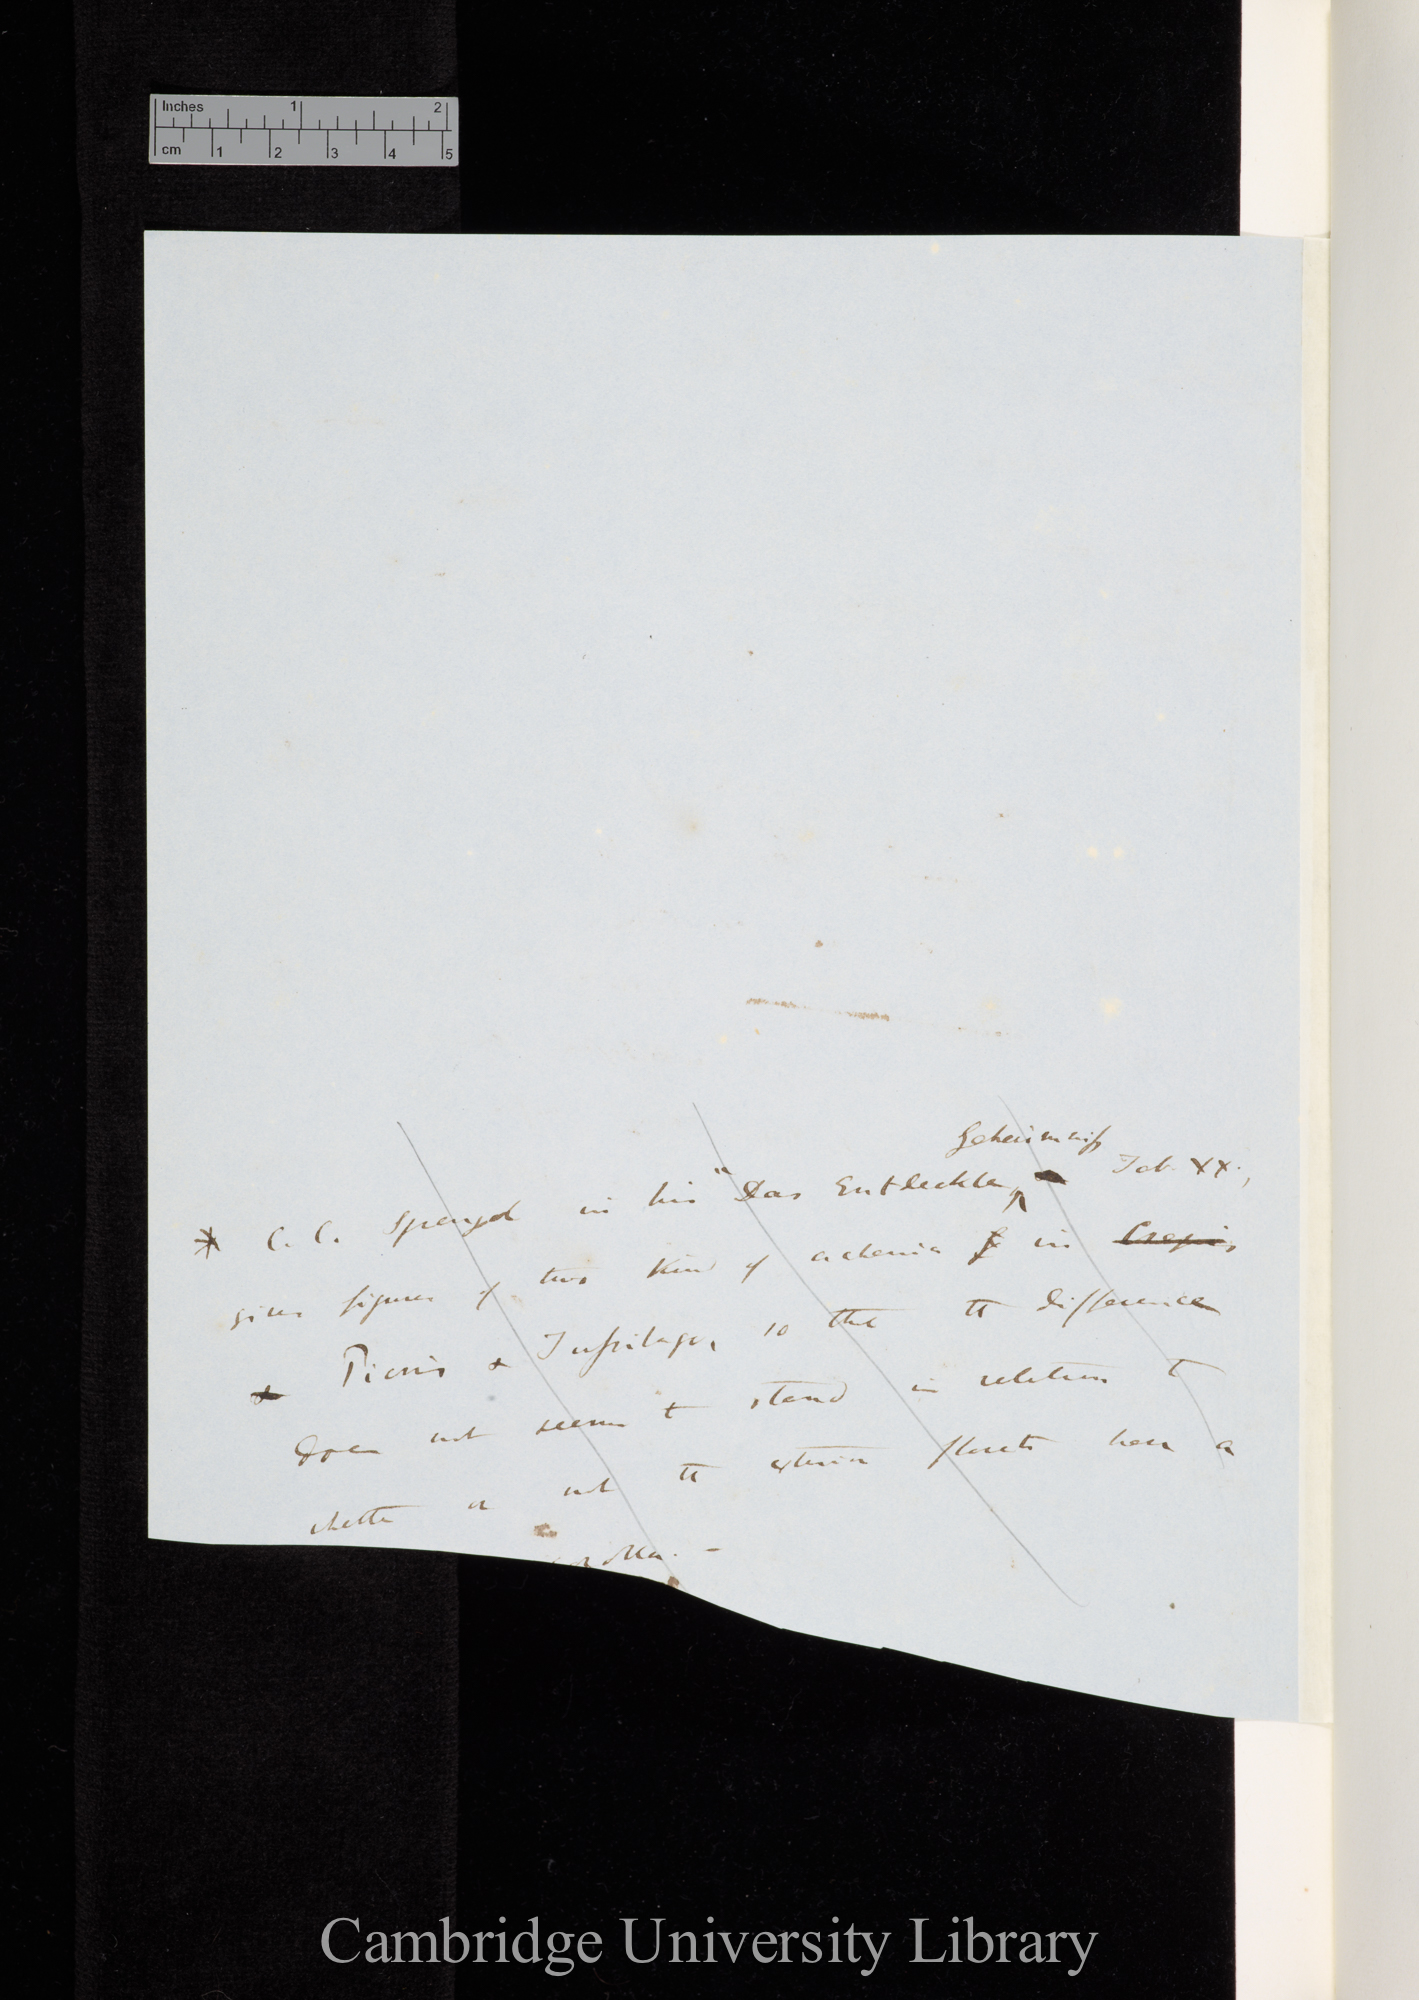 Inches 1 2
cm 1 2 3 4 5
Geheimniss
* C. C. Sprengel in his "Das Entdeckte Tab. XX.,
gives figures of two kind of achenia in Crepis,
Picris & Tussilago, so that the difference
does not seem to stand in relation to
whether or not the exterior florets have a
corolla. —
Cambridge University Library